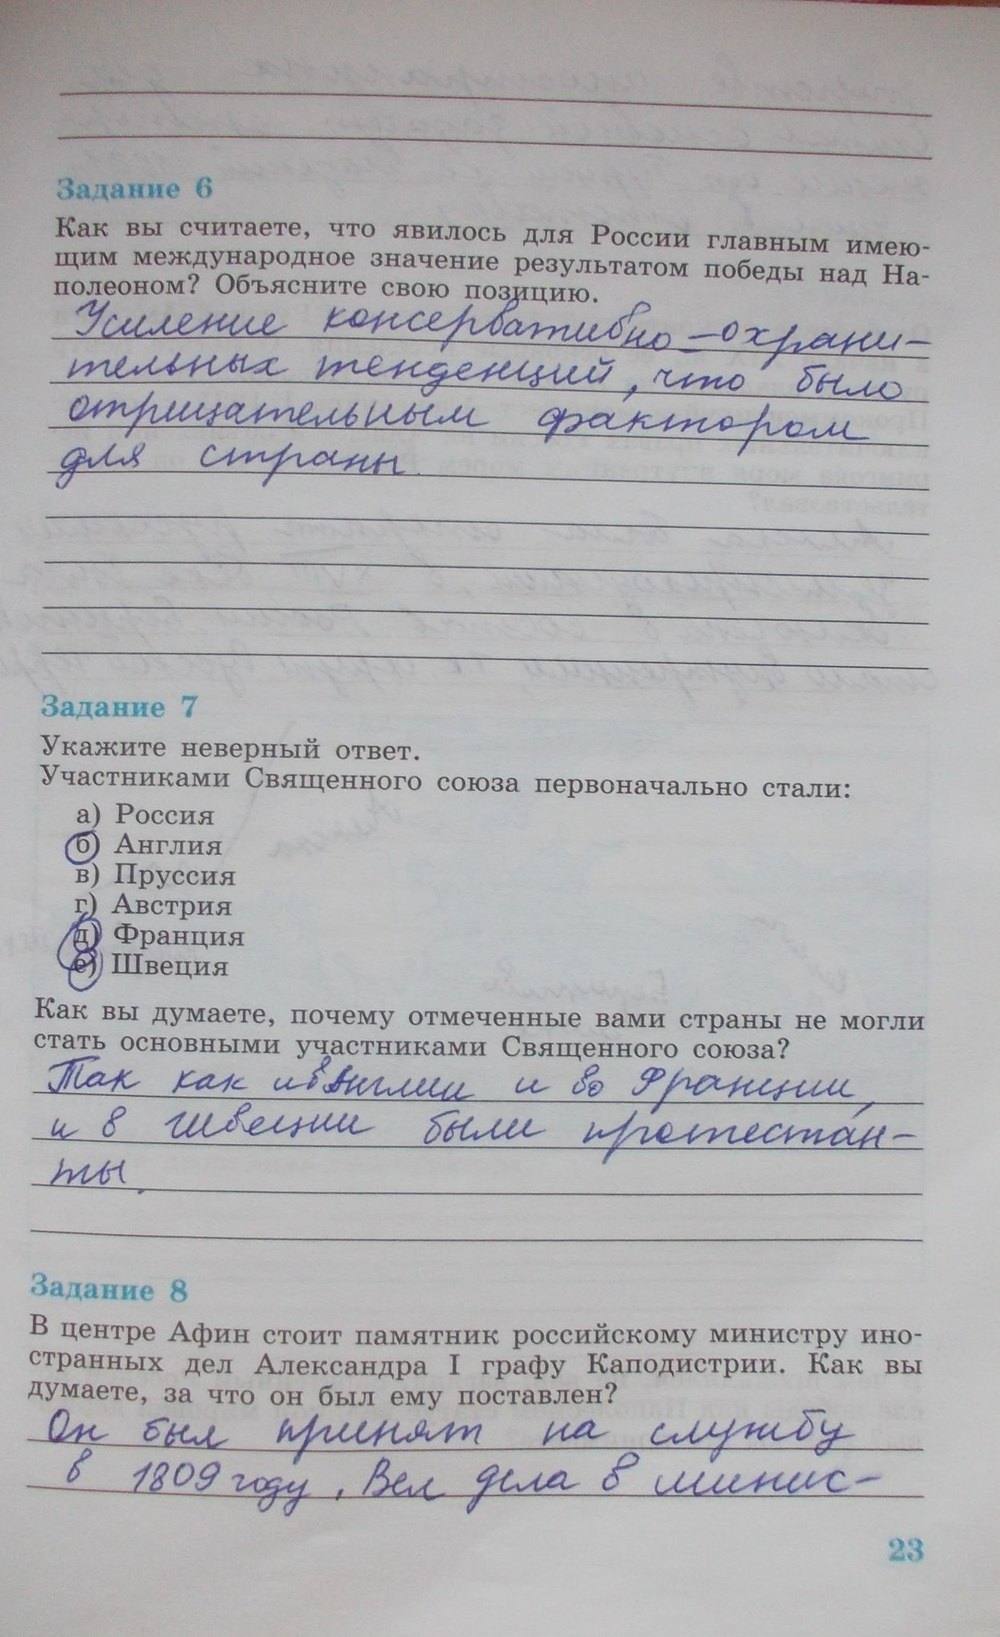 Задание 6
Как вы считаете, что явилось для России главным имею-
щим международное значение результатом победы над На-
полеоном? Объясните свою позицию.
Усиление консервативно-охрани-
тельных тенденций, что было
отрицательным фактором
для страны.
Задание 7
Укажите неверный ответ.
Участниками Священного союза первоначально стали:
а) Россия
б) Англия
в) Пруссия
г) Австрия
д) Франция
е) Швеция
Как вы думаете, почему отмеченные вами страны не могли
стать основными участниками Священного союза?
Так как и в Англии и во Франции,
и в Швеции были протестан-
ты.
Задание 8
В центре Афин стоит памятник российскому министру ино-
странных дел Александра I графу Каподистрии. Как вы
думаете, за что он был ему поставлен?
Он был принят на службу
в 1809 году. Вел дела в минис-
23